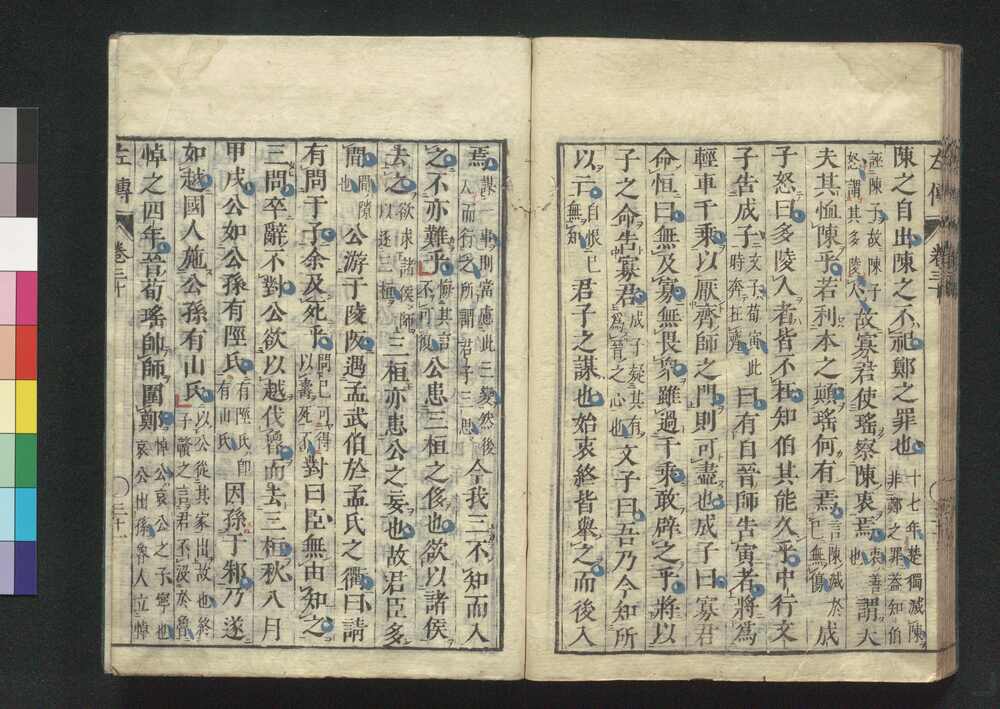 陳之自出陳之不祀鄭之罪也十七年楚獨滅陳非鄭之罪蓋知伯
誣陳子故陳子怒謂其多陵人故寡君使瑤察陳衷焉衷善也謂大
夫其恤陳乎若利本之顛瑤何有焉言陳滅於己無傷成
子怒曰多陵人者皆不在知伯其能久乎中行文
子告成子文子荀寅此時奔在齊曰有自晉師告寅者將爲
輕車千乘以厭齊師之門則可盡也成子曰寡君
命恒曰無及寡無畏衆雖過千乘敢辟之乎將以
子之命告寡君成子疑其有爲晉之心也文子曰吾乃今知所
以亡自恨已無知君子之謀也始衷終皆舉之而後入
焉謀一事則當慮此三變然後入而行之所謂君子三思今我三不知而入
之不亦難乎悔其言不可復公患三桓之侈也欲以諸侯
去之欲求諸侯師以逐三桓三桓亦患公之妄也故君臣多
間間隙也公游于陵阪遇孟武伯於孟氏之衢曰請
有問于子余及死乎問已可得以壽死不對曰臣無由知之
三問卒辭不對公欲以越伐魯而去三桓秋八月
甲戌公如公孫有陘氏有陘氏卽有山氏因孫于邾乃遂
如越國人施公孫有山氏以公從其家出故也終子贛之言君不沒於魯
悼之四年晉荀瑤帥師圍鄭悼公哀公之子寧也哀公出孫魯人立悼
左傳
卷三十
二十一
左傳
卷三十